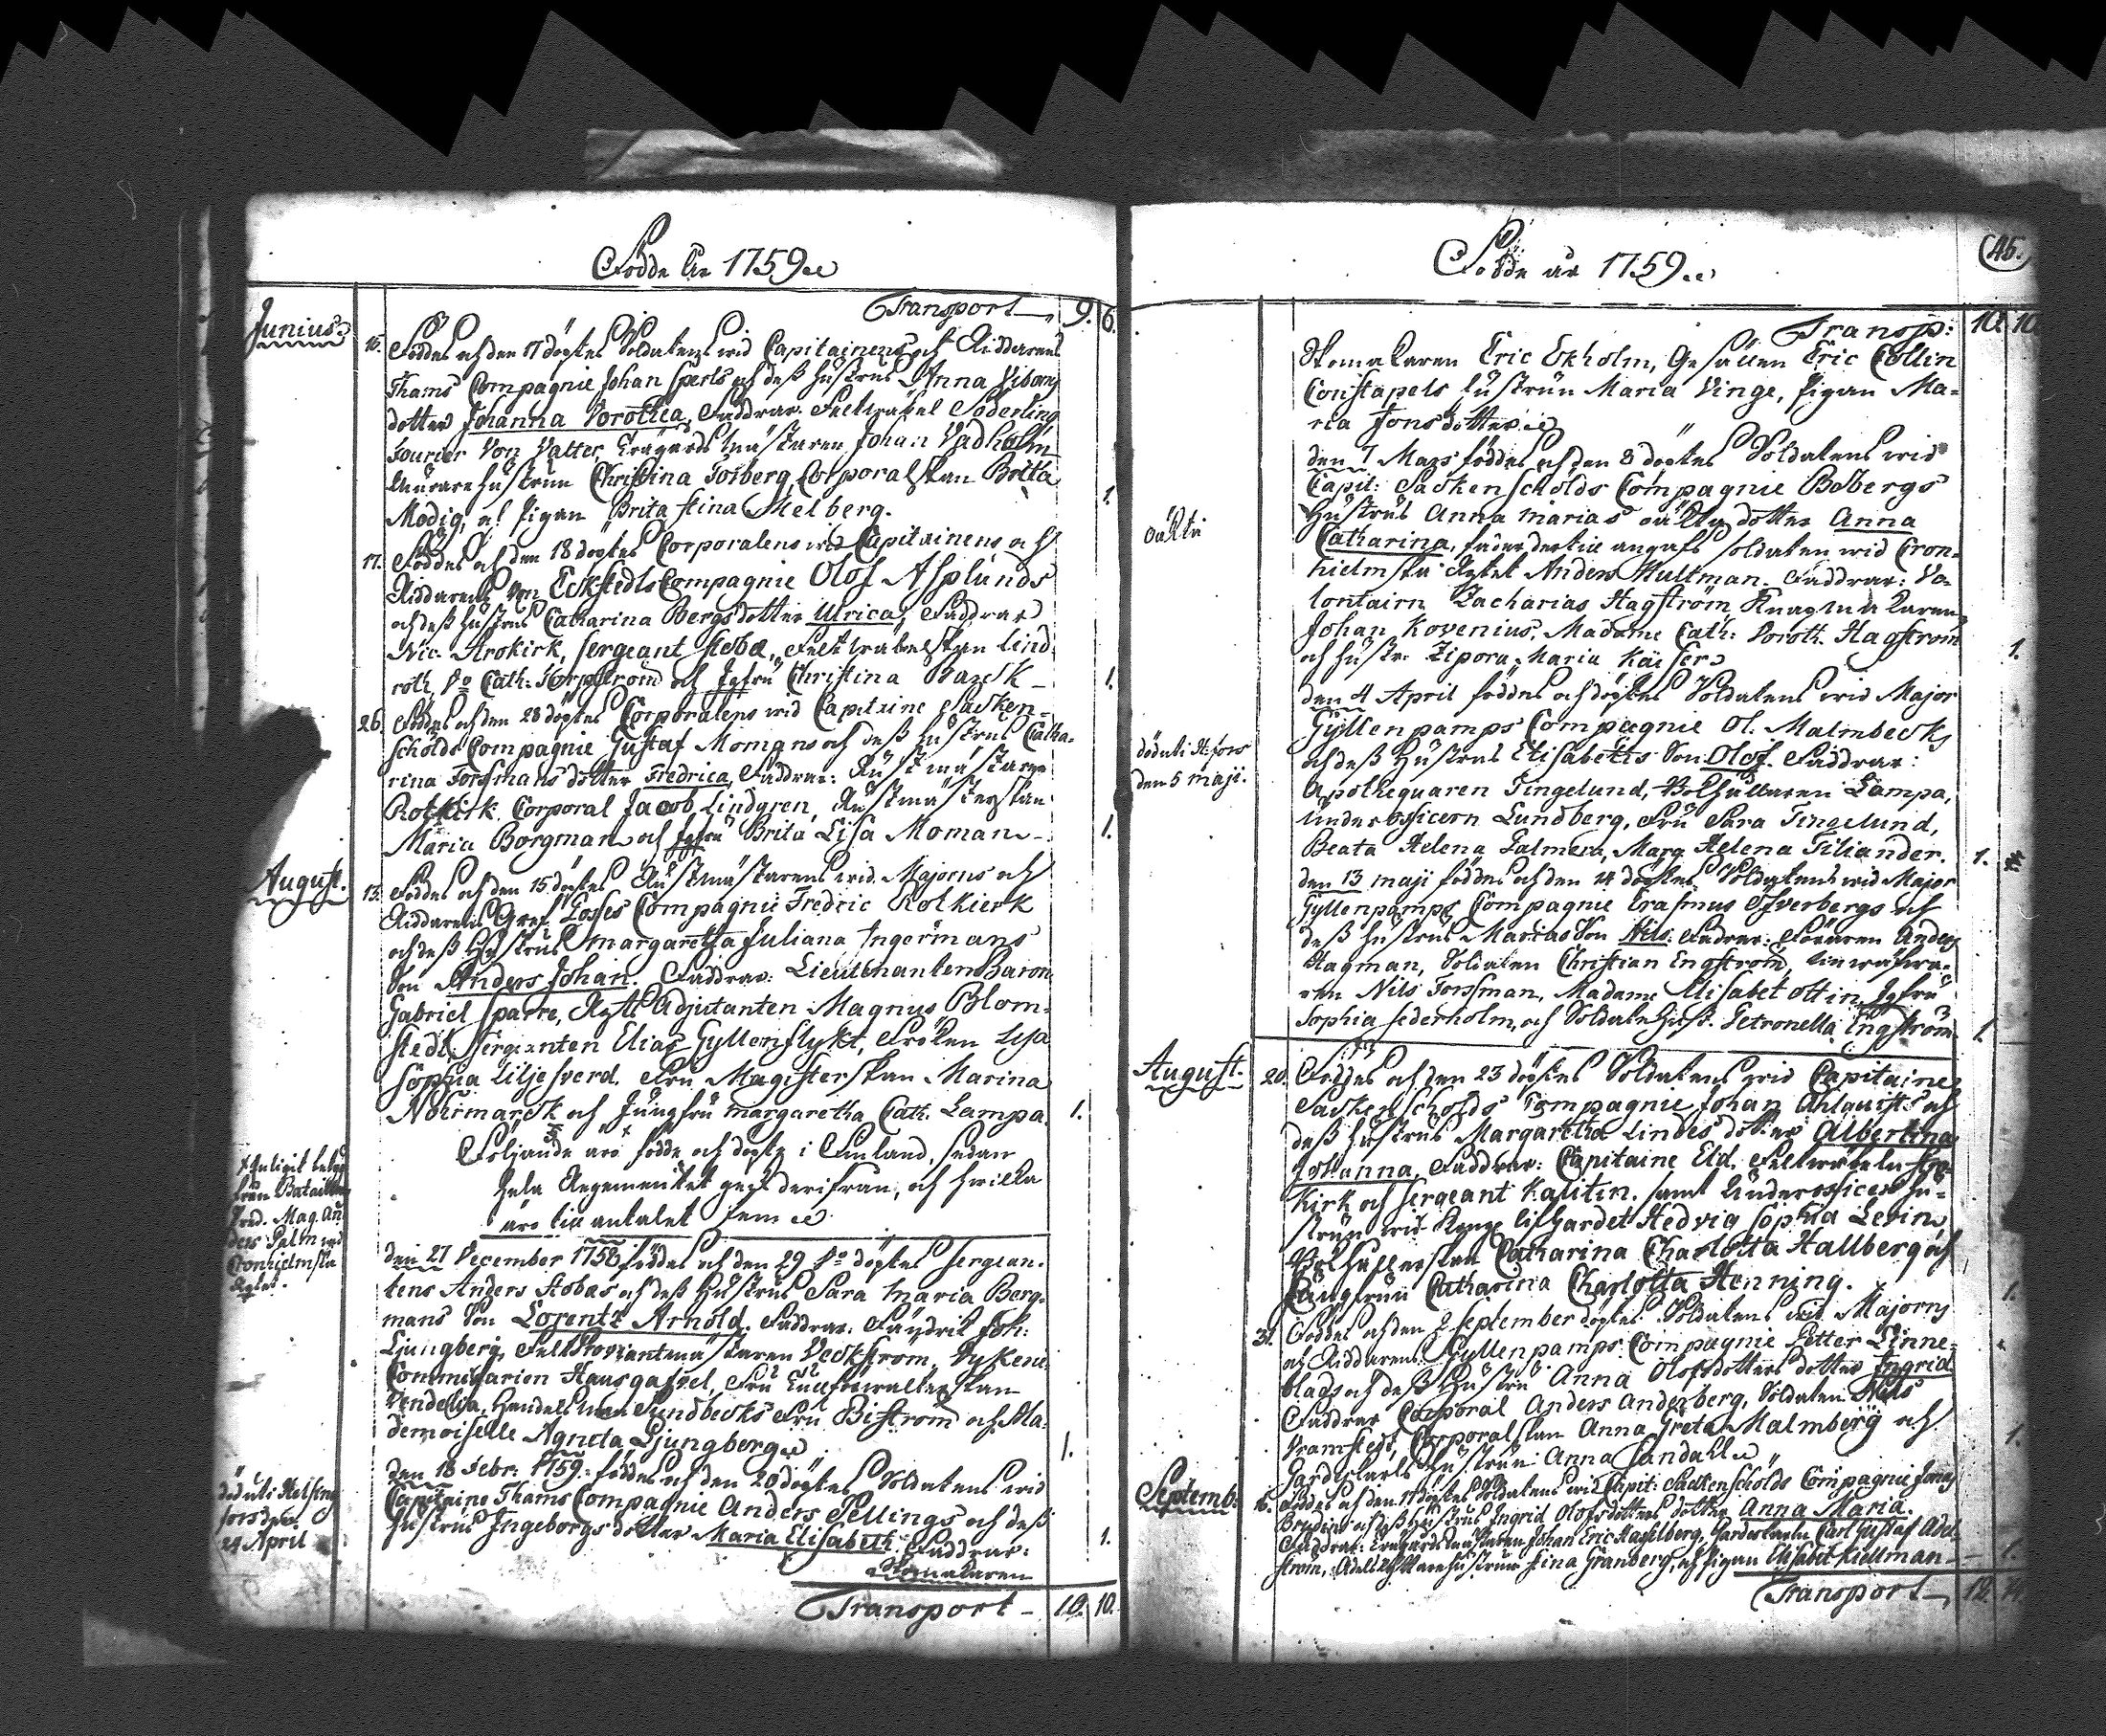 Födde År 1759.
Transport 9. 6.
Junius.
16. Föddes och den 17 döptes Soldatens wid Capitainens och Riddarens
Thams Compagnie Johan Sperls och deß hustrus Anna Viborgs
dotter Johanna Dorothea, Faddrar. Feltwäbel Söderling
Fourier Von Valter, Trägårds Mästaren Johan Vadholm
Murare hustrun Christina Forberg, Corporalskan Botta 1.
Modig, och Pigan Brita Stina Melberg.
17. Föddes och den 18 döptes Corporalens wid Capitainens och
Riddarens Von Eckstedts Compagnie Olof Asplunds
och deß hustrus Catharina Bergs dotter Ulrica, Faddrar
Nic. Strokirk, Sergeant Stobæ, Feltwäbelskan Lind-
roth, Do Cath: Torpström och Jgfru Christina Barck 1.
26. Föddes och den 28 döptes Corporalens wid Capitaine Sacken-
schölds Compagnie Gustaf Momans och deß hustrus Catha-
rina Forssmans dotter Fredrica, Faddrar: Rustmästaren
Rotkirk, Corporal Jacob Lindgren, Rustmästerskan
Maria Borgman och Jgfru Brita Lisa Moman 1.
August.
13. Föddes och den 15 döptes Rustmästarens wid Majorens och
Riddarens Gref Posses Compagnie Fredric Rotkirk
och deß Hustrus Margaretha Juliana Ingermans
Son Anders Johan. Faddrar: Lieutenanten Baron
Gabriel Sparre, Regts Adjutanten Magnus Blom-
stedt, Sergeanten Elias Gyllenflykt, Fröken Lisa
Sophia Liljesverd, Fru Magisterskan Marina
Nohrmarck och Jungfru Margaretha Cath: Lampa. 1.
Följande äro födde och döpte i Finland, sedan
hela Regementet gick derifrån, och hwilka
äro till antalet fem
från Bataill:
Pred. Mag. An-
ders Palm wid
Cronhielmska
Regtet.
den 27 December 1758 föddes och den 29 Do döptes Sergean-
tens Anders Stobas och deß Hustrus Sara Maria Berg-
mans Son Lorents Arnold. Faddrar: Fändrik Joh:
Ljungberg, Fält Proviantmästaren Veckström,
Commissarien Hausgafvel, Fru
Vendelia, Handelsman Sundbecks Fru Biström och Ma-
demoiselle Agneta Ljungberg 1.
den 18 Febr: 1759. föddes och den 20 döptes Soldatens wid
Capitaine Thams Compagnie Anders Pellings och deß
hustrus Ingeborgs dotter Maria Elisabeth. Faddrar: 1.
död uti Helsing
fors den
24 April
Skomakaren
Transport 10. 10.
Födde år 1759.
45.
Transp: 10. 10
Skomakaren Eric Ekholm, Gesällen Eric Collin
Constapels hustrun Maria Vinge, Pigan Ma-
ria Jonsdotter
den 7 Mars föddes och den 8 döptes Soldatens wid
Capit: Sackenschölds Compagnie Bobergs
Hustrus Anna Marias oäkta dotter Anna
oäkta
Catharina, fader dertill angafs Soldaten wid Cron-
hielmska Regtet Anders Hultman. Faddrar: Vo-
lontairn Zacharias Hagström, Knapmakaren
Johan Kovenius, Madame Cath: Doroth. Hagström
och hustr: Zipora Maria Käiser 1.
den 4 April föddes och döptes Soldatens wid Major
Gyllenpamps Compagnie Ol. Malmbecks
och deß Hustrus Elisabeths Son Olof. Faddrar:
död uti H:fors
den 5 Maji.
Apothequaren Tingelund, Bokhållaren Lampa,
Underofficern Lundberg, Fru Sara Tingelund,
Beata Helena Palmera, Marg Helena Tiliander. 1.
den 13 Maji föddes och den 14 döptes Soldatens wid Major
Gyllenpamps Compagnie Erasmus Öfverbergs och
deß hustrus Marias Son Nils. Fadrar: Föraren Anders
Hagman, Soldaten Christian Engström,
Nils Forssman, Madame Elisabet Ottin, Jgfru
Sophia Cederholm, och Soldate hust. Petronella Engström 1.
August.
20. Föddes och den 23 döptes Soldatens wid Capitaine
Sackenschölds Compagnie Johan Ahlquists och
deß hustrus Margaretha Lindes dotter Albertina
Johanna, Faddrar: Capitaine Eld. Feltwäbeln Stro-
kirk och Sergeant Kalitin. samt Underofficers hu-
strun wid Kongl Lifgardet Hedvig Sophia Levin
Bokhållerskan Catharina Charlotta Hallberg och
Jungfrun Catharina Charlotta Henning. 1.
31. Föddes och den 2 September döptes Soldatens wid Majorens
och Riddarens Gyllenpamps Compagnie Petter Linne-
blads och deß Hustru Anna Olofsdotters dotter Ingrid
Faddrar Corporal Anders Anderberg, Soldaten Nils
Bramstedt, Corporalskan Anna Greta Malmberg och 1.
Gardiskarls Hustrun Anna Sandahl
Septemb.
16. Föddes och den 17 döptes Soldatens wid Capit: Sackenschölds Compagnie Jonas
Brodins och deß hustrus Ingrid Olofsdotters dotter Anna Maria.
Faddrar: Trägårdsmästaren Johan Eric Hasselberg, Gardeskarln Carl Gustaf Adel-
ström, hustrun Stina Granberg, och Pigan Elisabet Kiellman 1.
Transport 12. 14.